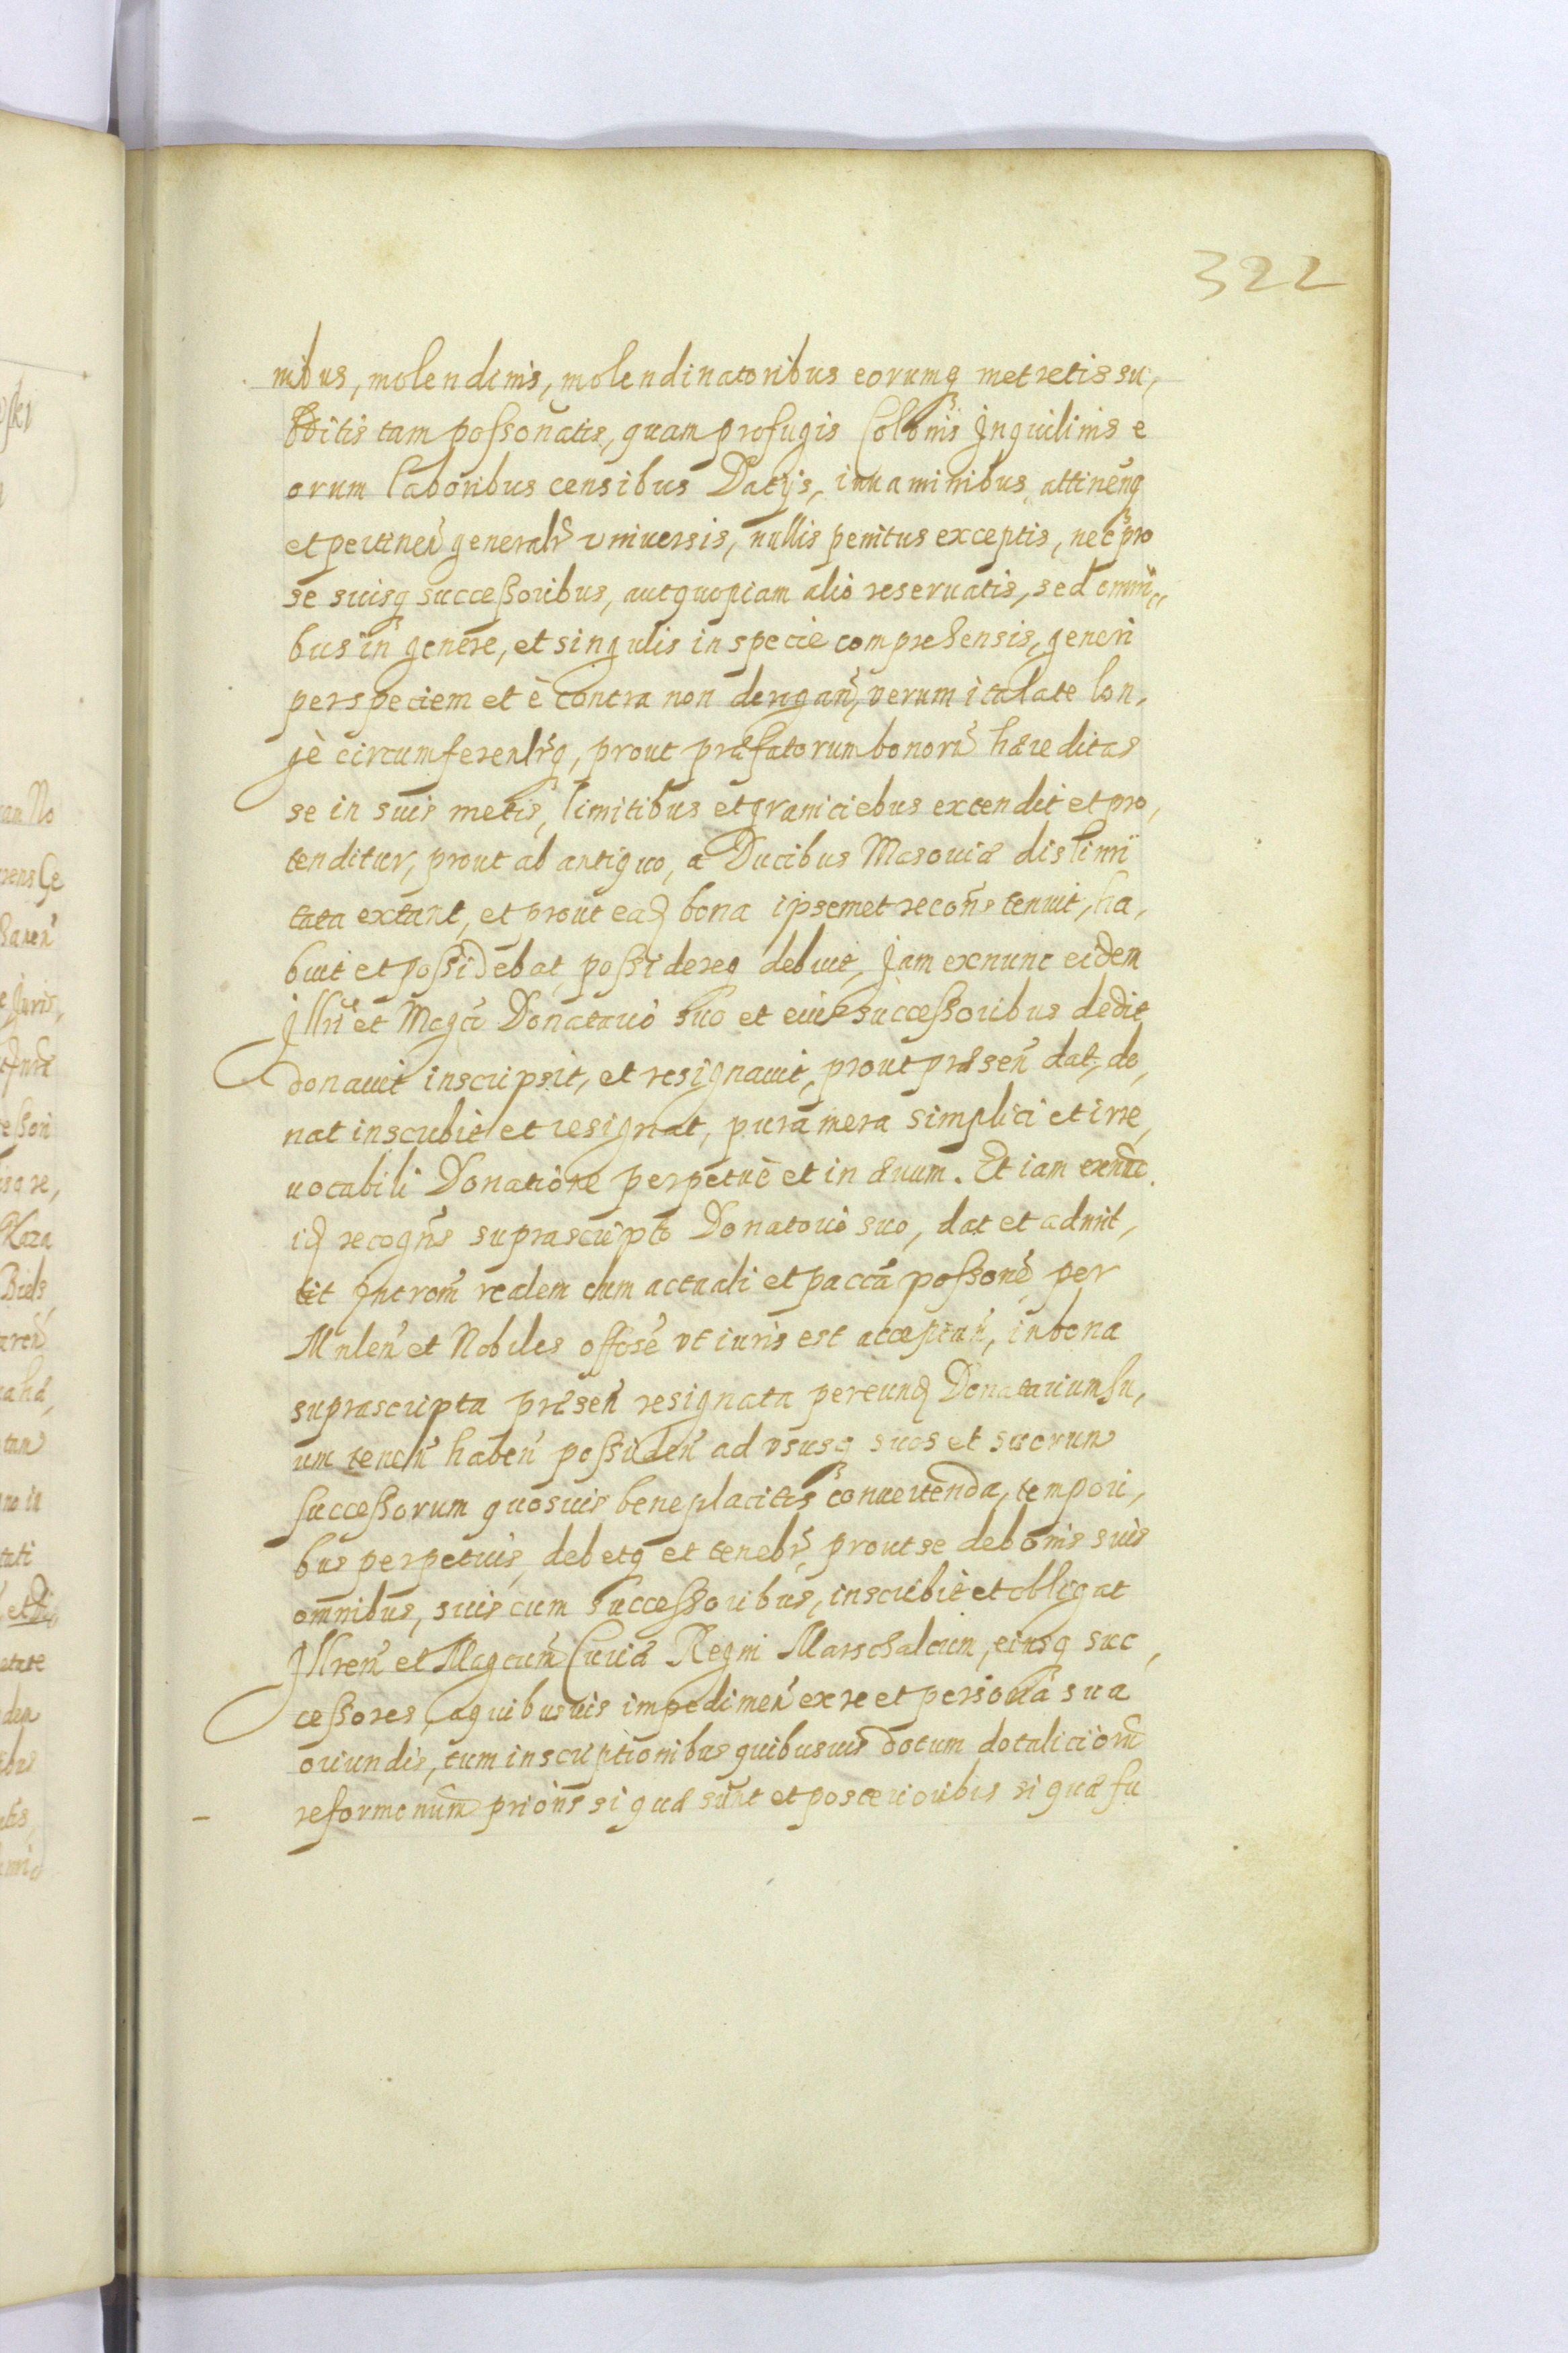 322
nibus, molendinis, molendinatoribus eorumq metretis su,
bditis tam possonatis, quam profugis Colonis Inquilinis e
orum laboribus censibus Datijs, iuuaminibus attinenq
et pertinen generalr vniuersis, nullis penitus exceptis, nec pro
se suisq successoribus, aut quopiam alio reseruatis, sed omni,
bus in genere, et singulis in specie comprehensis, generi
per speciem et è contra non derogan, verum ita late lon,
gè circumferenlrq, prout præfatorum bonorū hæreditas
se in suis metis, limitibus et graniciebus extendit et pro,
tenditur, prout ab antiquo, a Ducibus Masouiæ dislimi
tata extant, et prout ead bona ipsemet recons tenuit, ha,
buit et possidebat, possidereq debuit, Jam exnunc eidem
Illri et Magco Donatario suo et eius successoribus dedit
donauit inscripsit, et resignauit, prout præsen dat, do,
nat inscribit et resignat, pura mera simplici et irre,
uocabili Donatione perpetuè et in æuum. Et iam exnuc
id recogns suprascripto Donatorio suo, dat et admit,
tit Introm realem cum actuali et pacca possone, per
Mnlen et Nobiles offose vt iuris est acceptan, in bona
suprascripta præsen resignata per eund Donatarium su,
um tenen haben possiden ad vsusq suos et suorum
successorum quosuis beneplacitis conuertenda, tempori,
bus perpetuis, debetq et tenebr, prout se de bonis suis
omnibus, suis cum successoribus, inscribit et obligat
Illren et Magcum Curiæ Regni Marschalcum, eiusq suc,
cessores, a quibusuis impedimen ex re et persona sua
oriundis, tum inscriptionibus quibusuis dotum dotaliciorū
reformonum prions si quæ sunt et posterioribus si quæ fu